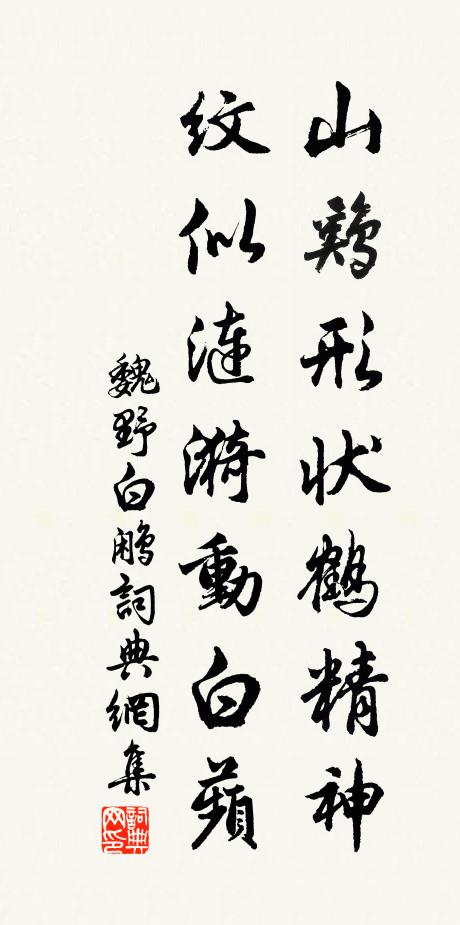 山鷄形状鶴精神
紋似漣漪動白蘋
魏野白鷴詞典網集
詞典网印